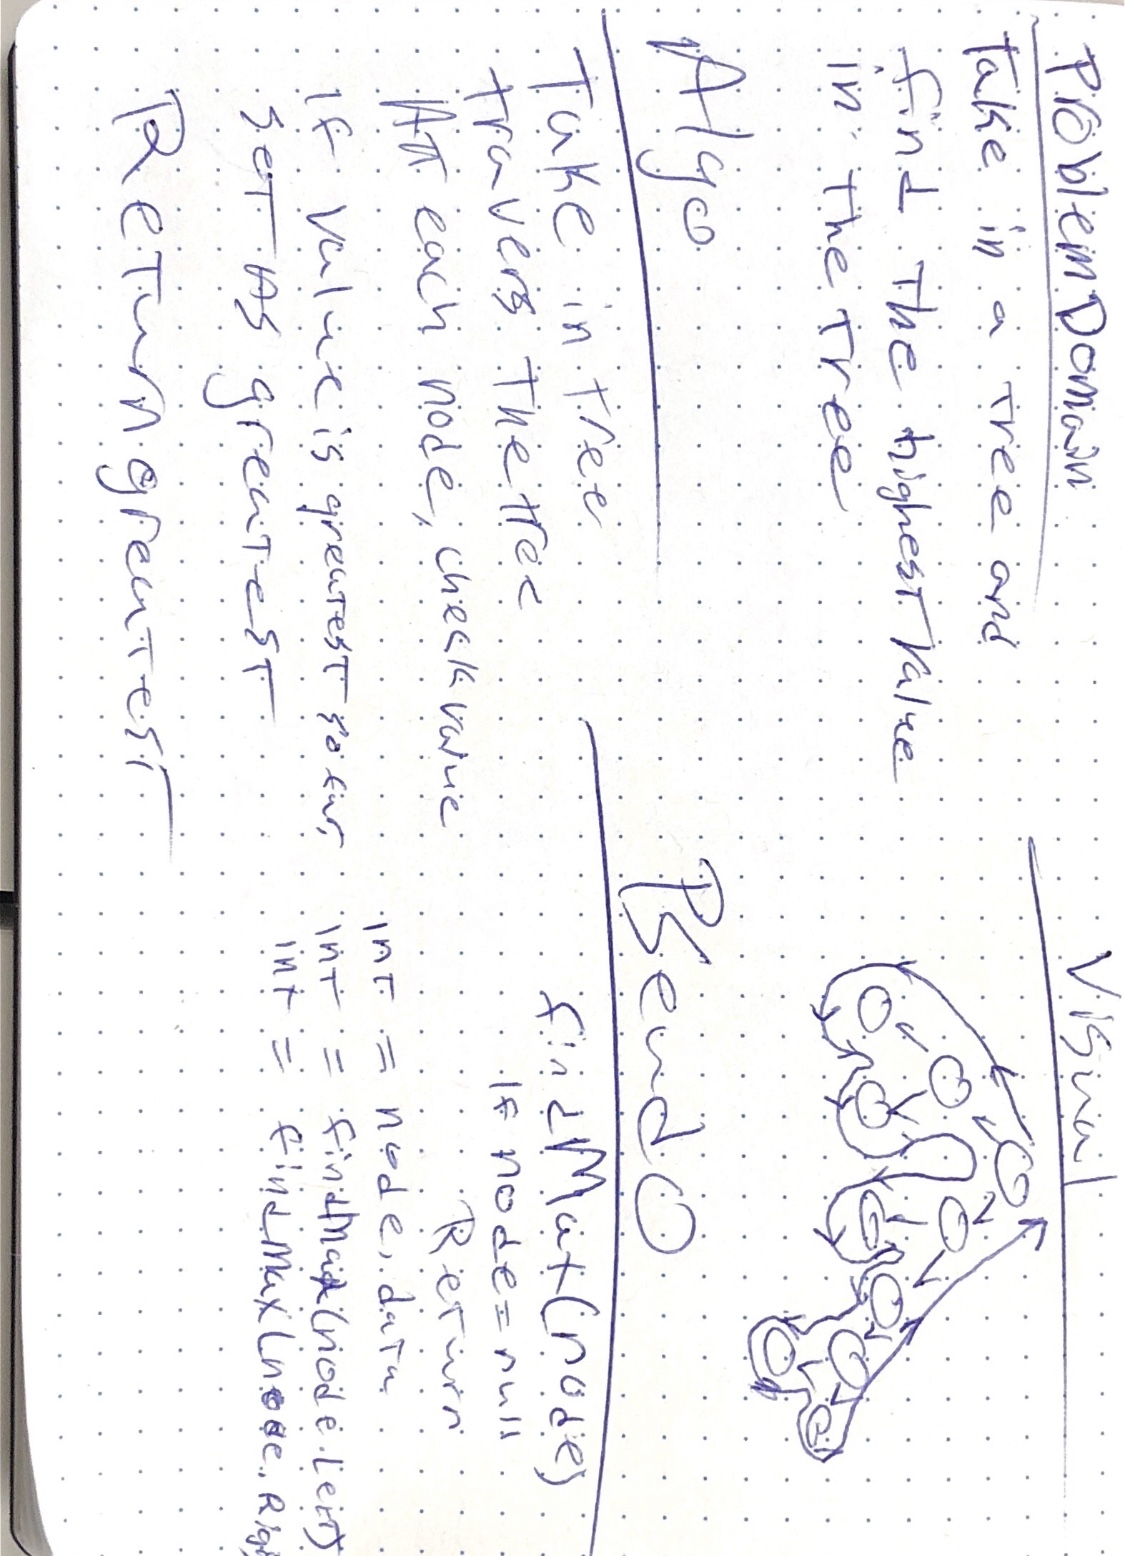 Problem Domain
Take in a tree and
find the highest value
in the tree
Algo
Take in tree
travers the tree
At each node, check value
if value is greatest so far,
set as greatest
Return greatest
Visual
PseudO
find Max(node)
If node = null
Return
int = node.data
int = findMax(node.left)
int = findMax(node.Rig